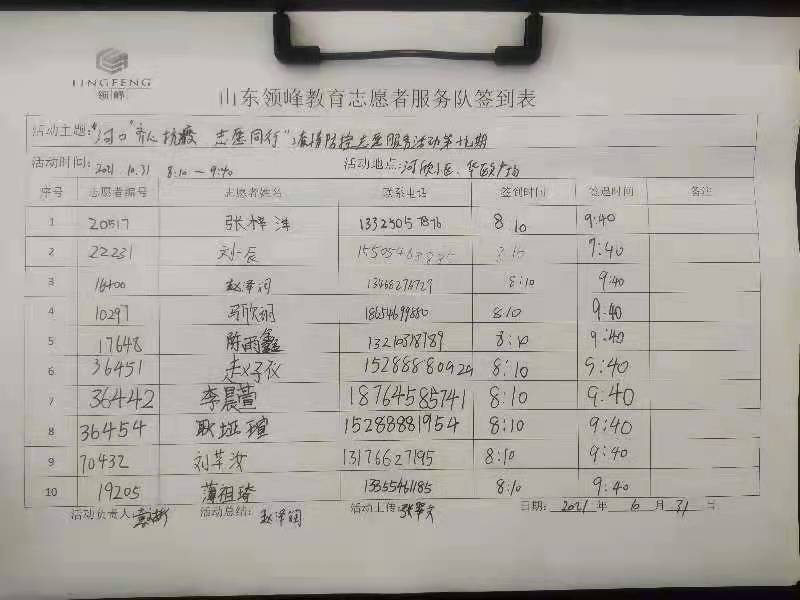 LINGFENG
领峰
山东领峰教育志愿者服务队签到表
活动主题:"河口"齐心抗疫 志愿同行"疫情防控志愿服务活动第十九期
活动时间: 2021.10.31 8:10—9:40 活动地点: 河欣小区、
序号 志愿者编号 志愿者姓名 联系电话 签到时间 签退时间 备注
1 20517 张梓洋 8:10 9:40
2 22231 刘一辰 8:10 9:40
3 16400 赵泽润 13468276729 8:10 9:40
4 10297 18654699880 8:10 9:40
5 17648 陈雨鑫 13210318789 8:10 9:40
6 36451 赵子仪 15288880929 8:10 9:40
7 36442 李晨萱 18764585741 8:10 9:40
8 36454 耿娅瑄 15288881954 8:10 9:40
9 70432 刘芊汝 13176627195 8:10 9:40
10 19205 薄祖琦 13355461185 8:10 9:40
活动负责人: 活动总结: 赵泽润 活动上传: 日期: 2021 年 10 月 31 日